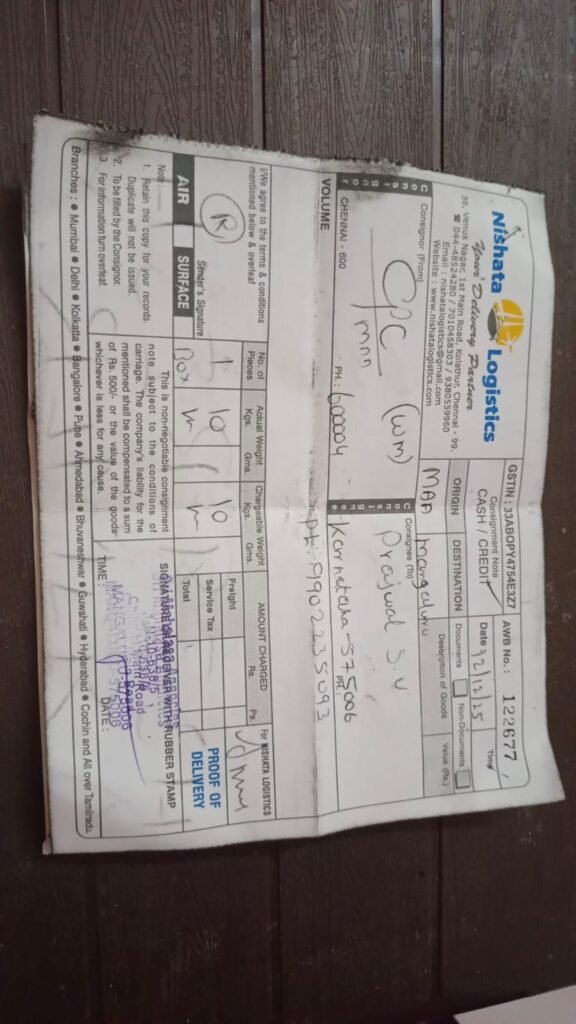 Nishata Logistics
Your Delivery Partner
36, Venus Nagar, 1st Main Road, Kolathur, Chennai - 99.
☎ 044-48524280 / 7010458303 / 9380559960
Email : nishatalogistics@gmail.com
Website : www.nishatalogistics.com
GSTIN : 33ABOPY4754E3Z7
Consignment Note
CASH / CREDIT
AWB No. : 122677
Date 12/12/25
Time
ORIGIN
MAA
DESTINATION
Mangaluru
Documents
Non-Documents
Description of Goods
Value (Rs.)
Consignor
Consignor (From)
CPC (WM)
CHENNAI - 600
PH.: 600004
Consignee
Consignee (To)
Prajwal S.V
Karnataka-575006
PH.:
Ph: 9902235093
VOLUME
I/We agree to the terms & conditions
mentioned below & overleaf
Sender's Signature
R
AIR
SURFACE
No. of
Pieces
1
Box
Actual Weight
Kgs. Gms.
10
Chargeable Weight
Kgs. Gms.
10
AMOUNT CHARGED
Rs. Ps.
Freight
Service Tax
Total
For NISHATA LOGISTICS
PROOF OF
DELIVERY
Note :
1. Retain this copy for your records.
Duplicate will not be issued.
2. To be filled by the Consignor.
3. For information turn overleaf.
This is non-negotiable consignment
note subject to the conditions of
carriage. The company's liability for the
mentioned shall be compensated to a sum
of Rs. 500/- or the value of the goods
whichever is less for any cause.
SIGNATURE OF RECEIVER WITH RUBBER STAMP
Main Road
TIME :
DATE :
Branches : ● Mumbai ● Delhi ● Kolkatta ● Bangalore ● Pune ● Ahmedabad ● Bhuvaneshwar ● Guwahati ● Hyderabad ● Cochin and All over Tamilnadu.